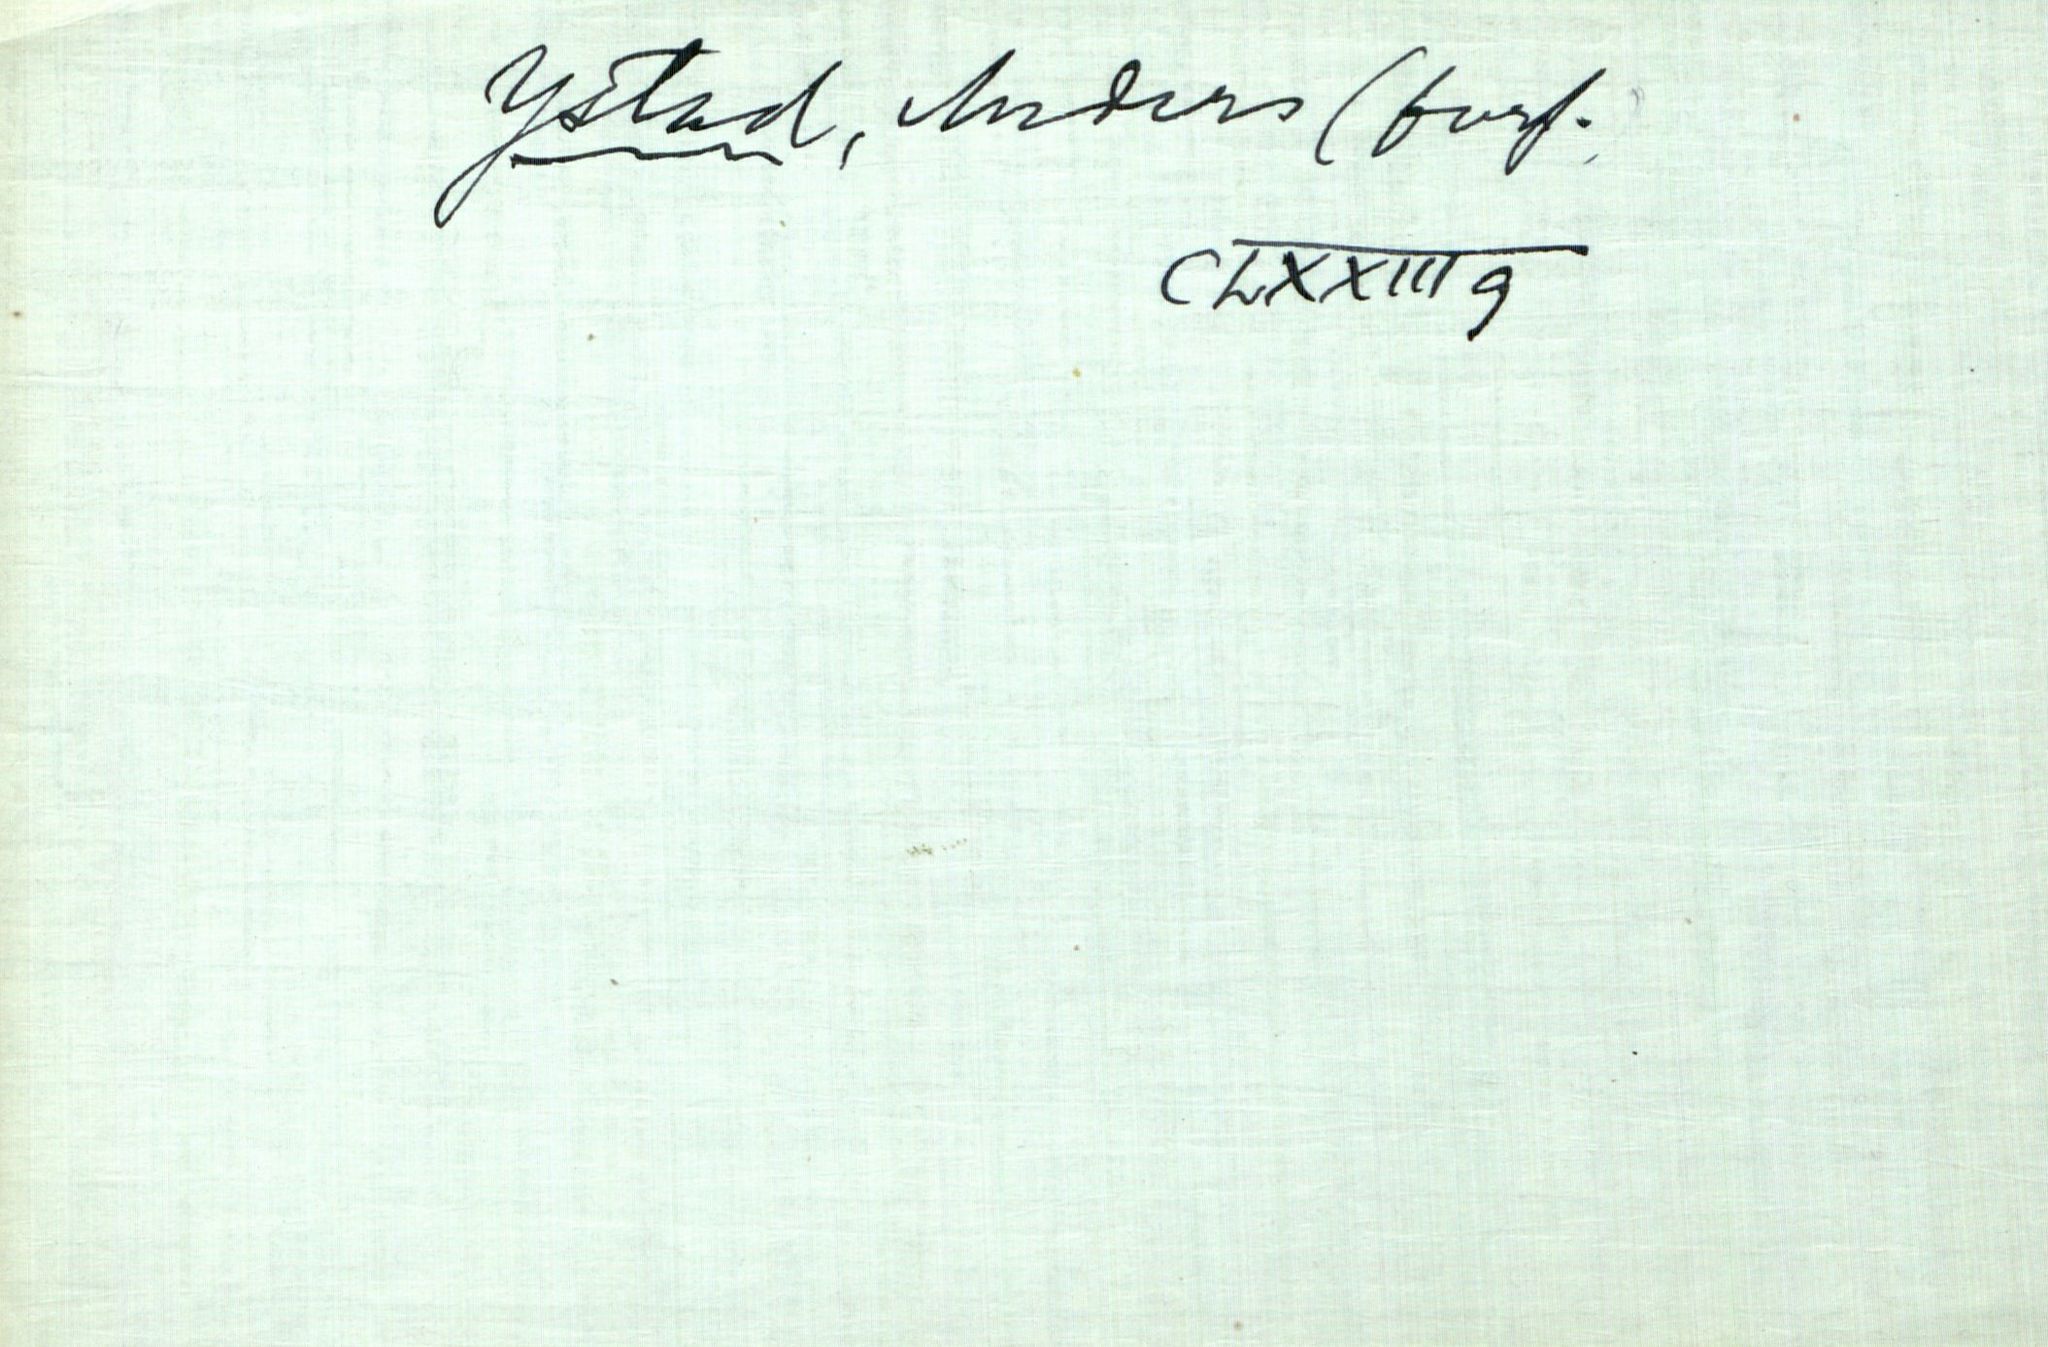 Ystad, Anders (forf.
CLXXIII9